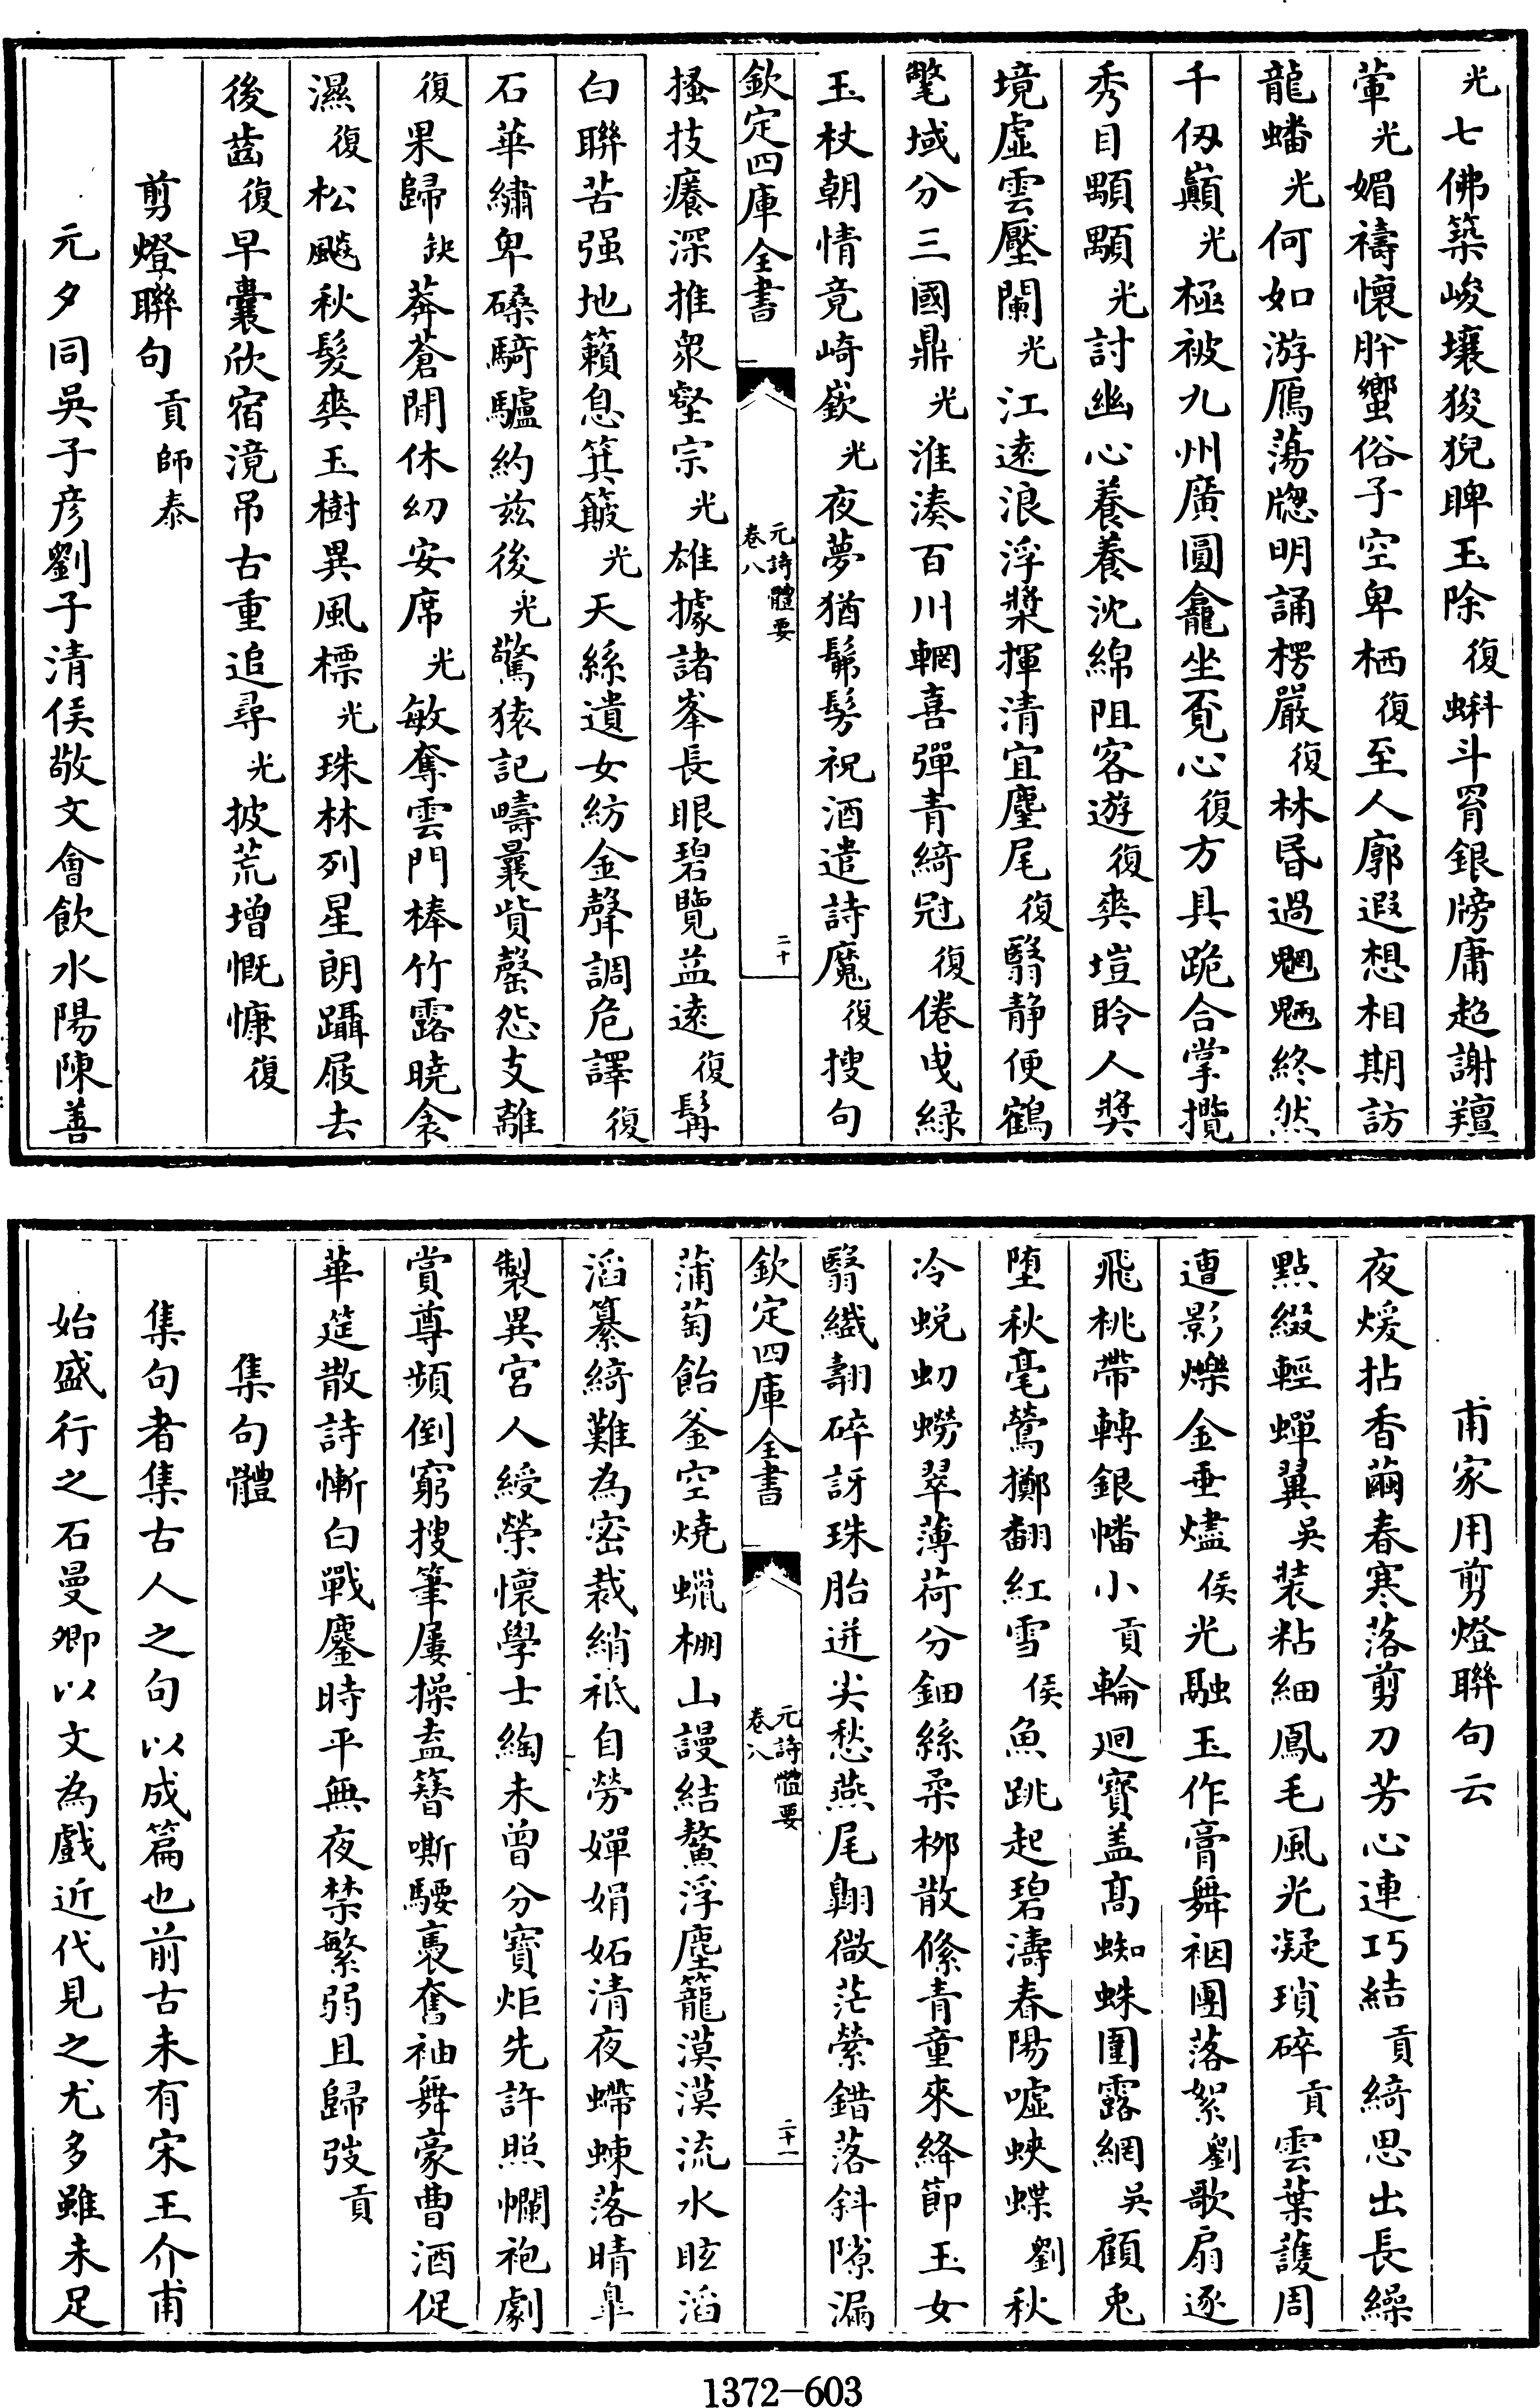 光七佛築峻壤狻猊睥玉除復蝌斗罥銀牓庸趋謝羶
葷光媚禱懷肸蠁俗子空卑栖復至人廓遐想相期訪
龍蟠光何如游鴈蕩牕明誦楞嚴復林昏過魍魎終然
千仭巔光極被九州廣圓龕坐覓心復方具跪合掌攬
秀目顒顒光討幽心養養沈綿阻客遊復爽塏聆人奬
境虛雲壓闌光江遠浪浮槳揮清宜麈尾復翳静便鶴
氅域分三國鼎光淮湊百川輞喜彈青綺冠復倦曵緑
玉杖朝情竟崎嶔光夜夢猶髴髣祝酒遣詩魔復搜句
欽定四庫全書
元詩體要
卷八
二十
搔技癢深推衆壑宗光雄據諸峯長眼碧覽益遠復髯
白聯苦强地籟息箕簸光天絲遺女紡金聲調危譯復
石華繡卑磉騎驢約兹後光驚猿記疇曩貲罄怨支離
復果歸缺莽蒼閒休幻安席光敏奪雲門棒竹露曉衾
濕復松飈秋髮爽玉樹異風標光珠林列星朗躡屐去
後齒復早囊欣宿滰吊古重追尋光披荒增慨慷復
剪燈聯句貢師泰
元夕同吳子彦劉子清侯敬文會飲水陽陳善
甫家用剪燈聯句云
夜煖拈香繭春寒落剪刀芳心連巧結貢綺思出長繰
點綴輕蟬翼吳裝粘細鳳毛風光凝瑣碎貢雲葉護周
遭影爍金垂燼侯光融玉作膏舞裀團落絮劉歌扇逐
飛桃帶轉銀幡小貢輪廻寶盖髙蜘蛛圍露網吳顧兎
堕秋毫鶯擲翻紅雪侯魚跳起碧濤春陽噓蛺蝶劉秋
冷蜕虭蟧翠薄荷分鈿絲柔栁散絛青童來絳節玉女
翳纎翿碎訝珠胎迸尖愁燕尾翺微茫縈錯落斜隙漏
欽定四庫全書
元詩體要
卷八
二十一
蒲萄飴釜空燒蠟棚山謾結鰲浮塵籠漠漠流水眩滔
滔纂綺難為密裁綃祗自勞嬋娟妬清夜螮蝀落晴臯
製異宮人綬榮懷學士綯未曾分寶炬先許照襴袍劇
賞尊頻倒窮搜筆屢操盍簪嘶騕褭奮袖舞豪曹酒促
華筵散詩慚白戰鏖時平無夜禁繁弱且歸弢貢
集句體
集句者集古人之句以成篇也前古未有宋王介甫
始盛行之石曼卿以文為戲近代見之尤多雖未足
1372-603